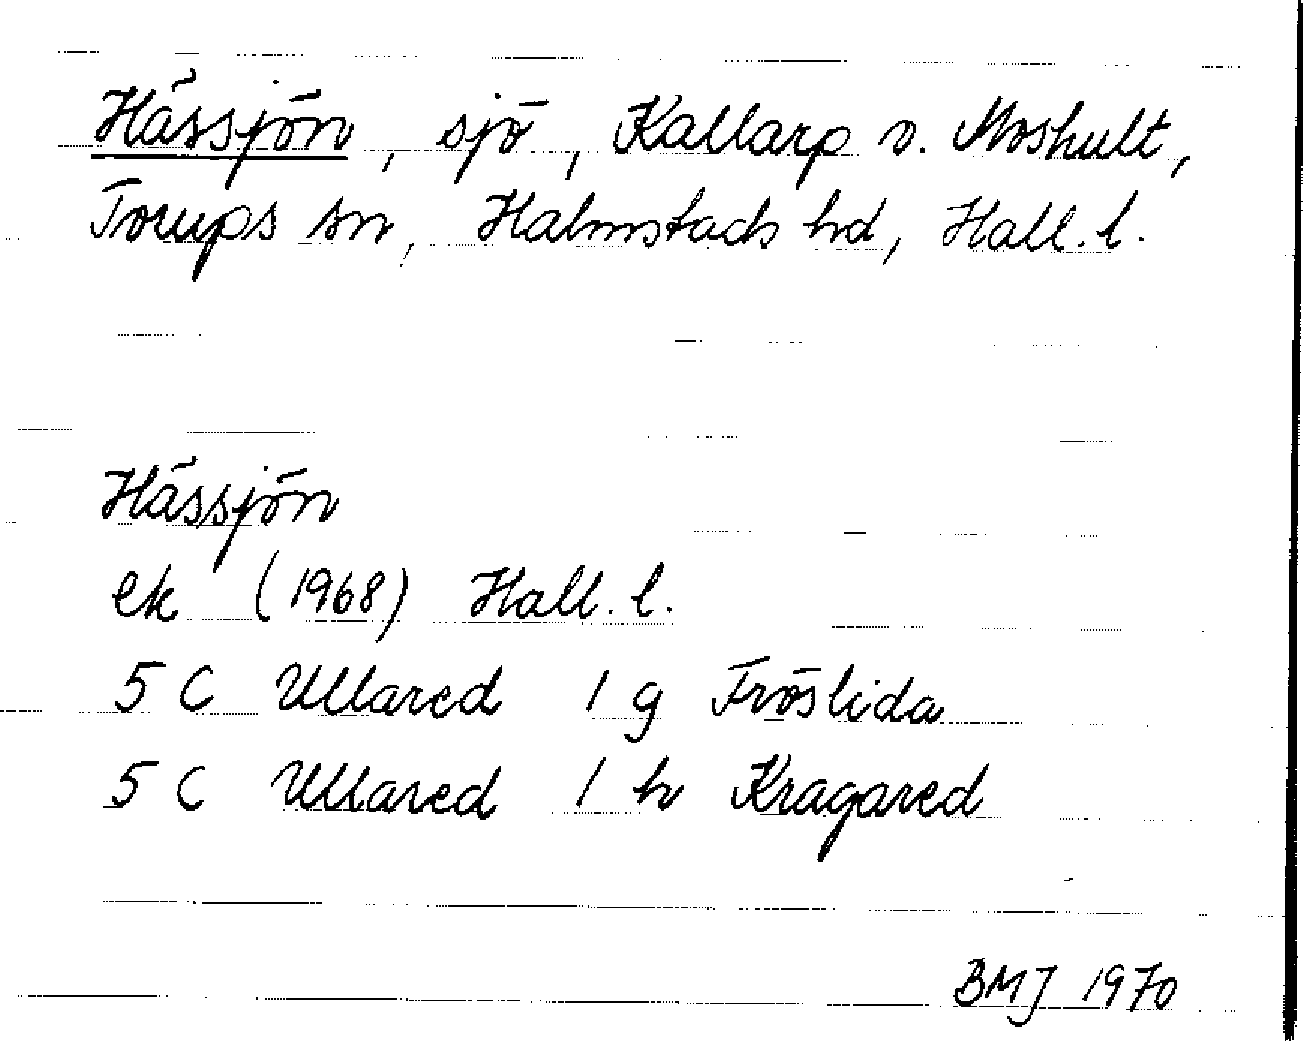 Hässjön, sjö, Kallarp o. Moshult,
Torups sn, Halmstads hd, Hall. l.
Hässjön
ek (1968) Hall. l.
5 C Ullared 1 g Fröslida
5 C Ullared 1 h Kragared
BMJ 1970